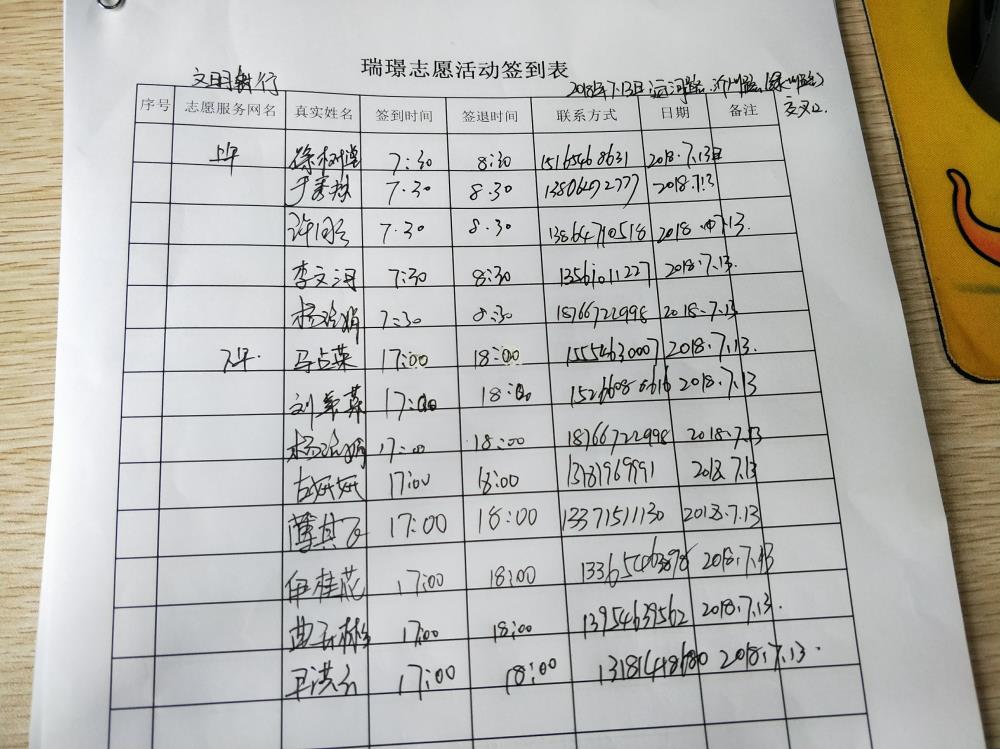 瑞璟志愿活动签到表
文明出行 2018年7.13日 运河路
交叉口
序号 志愿服务网名 真实姓名 签到时间 签退时间 联系方式 日期 备注
上午 徐树堂 7:30 8:30 15165468631 2018.7.13日
7.30 8.30 13806472777 2018.7.13
7.30 8.30 13864710518 2018.7.13.
李文河 7:30 8:30 13561011227 2018.7.13.
7:30 8:30 18766722998 2018.7.13.
下午 马占英 17:00 18:00 15554630007 2018.7.13.
17:00 18:00 15266086616 2018.7.13
17:00 18:00 18766722998 2018.7.13
17:00 18:00 2018.7.13
薄其飞 17:00 18:00 13371511130 2018.7.13
伊桂花 17:00 18:00 2018.7.13
17:00 18:00 13954639562 2018.7.13.
王洪云 17:00 18:00 13181448680 2018.7.13.